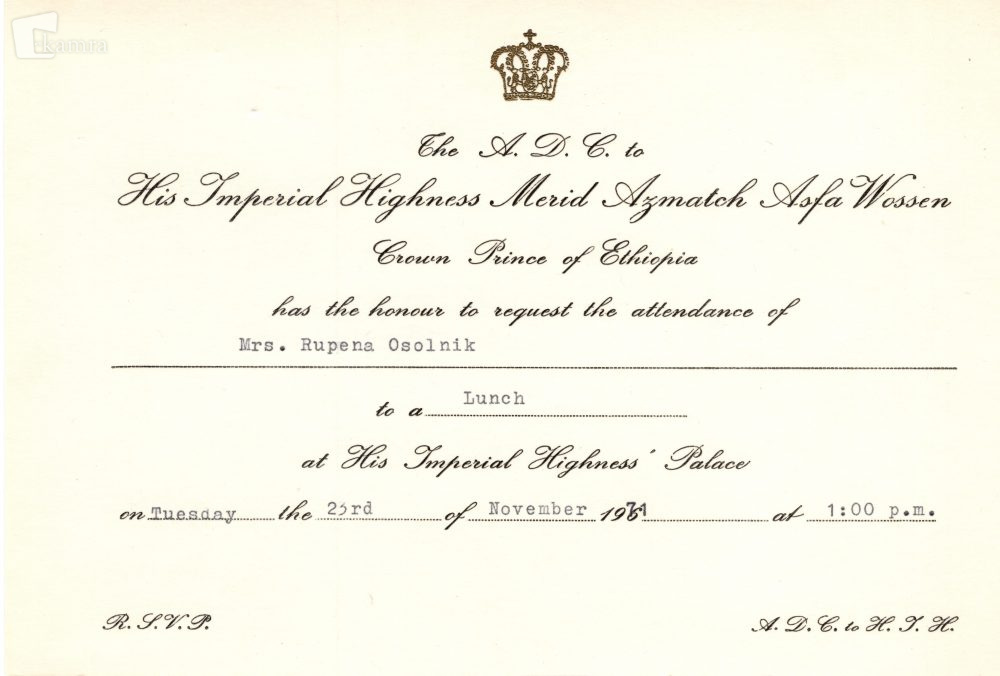 kamra
The A. D. C. to
His Imperial Highness Merid Azmatch Asfa Wossen
Crown Prince of Ethiopia
has the honour to request the attendance of
Mrs. Rupena Osolnik
to a Lunch
at His Imperial Highness' Palace
on Tuesday the 23rd of November 1971 at 1:00 p.m.
R. S. V. P. A. D. C. to H. I. H.